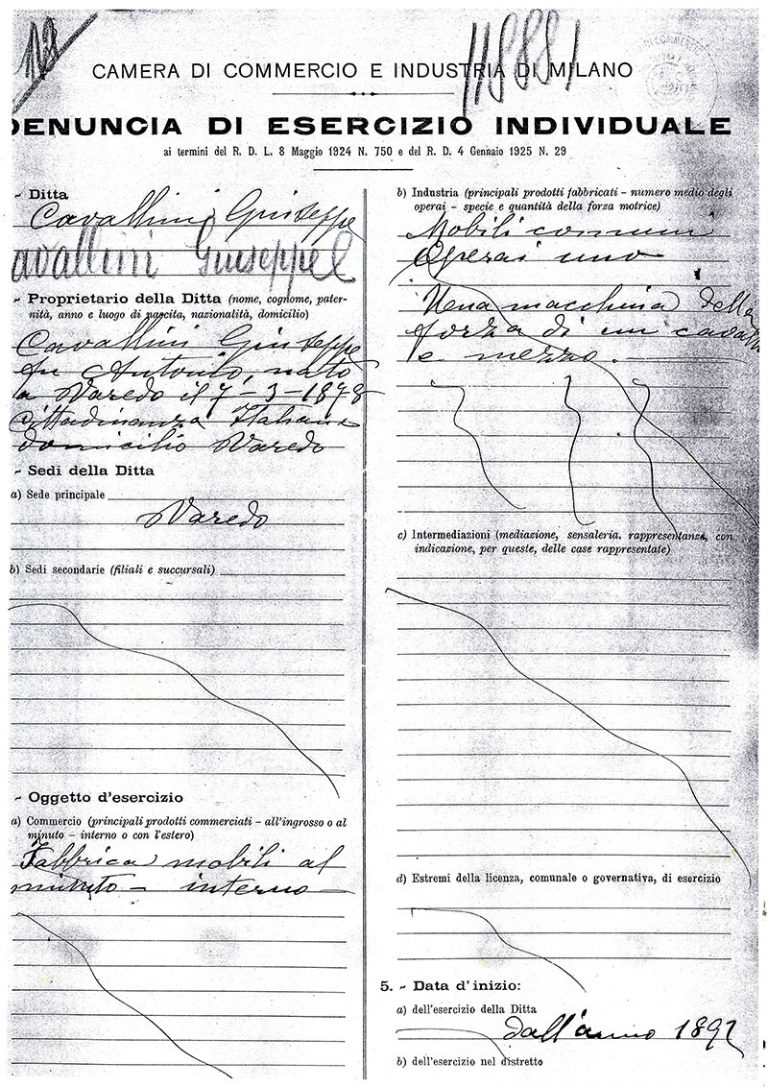 118881
CAMERA DI COMMERCIO E INDUSTRIA DI MILANO
DENUNCIA DI ESERCIZIO INDIVIDUALE
ai termini del R. D. L. 8 Maggio 1924 N. 750 e del R. D. 4 Gennaio 1925 N. 29
- Ditta
Cavallini Giuseppe
avallini Giuseppe
- Proprietario della Ditta (nome, cognome, pater-
nità, anno e luogo di nascita, nazionalità, domicilio)
Cavallini Giuseppe
fu Antonio, nato
a Varedo il 7-3-1878
Cittadinanza Italiana
domicilio Varedo
- Sedi della Ditta
a) Sede principale
Varedo
b) Sedi secondarie (filiali e succursali)
- Oggetto d'esercizio
a) Commercio (principali prodotti commerciati - all'ingrosso o al
minuto - interno o con l'estero)
Fabbrica mobili al
minuto - interno
b) Industria (principali prodotti fabbricati - numero medio degli
operai - specie e quantità della forza motrice)
Mobili comuni
Operai uno
Una macchina della
forza di un cavallo
e mezzo.
c) Intermediazioni (mediazione, sensaleria, rappresentanza, con
indicazione, per queste, delle case rappresentate)
d) Estremi della licenza, comunale o governativa, di esercizio
5. - Data d'inizio:
a) dell'esercizio della Ditta
dall'anno 1892
b) dell'esercizio nel distretto